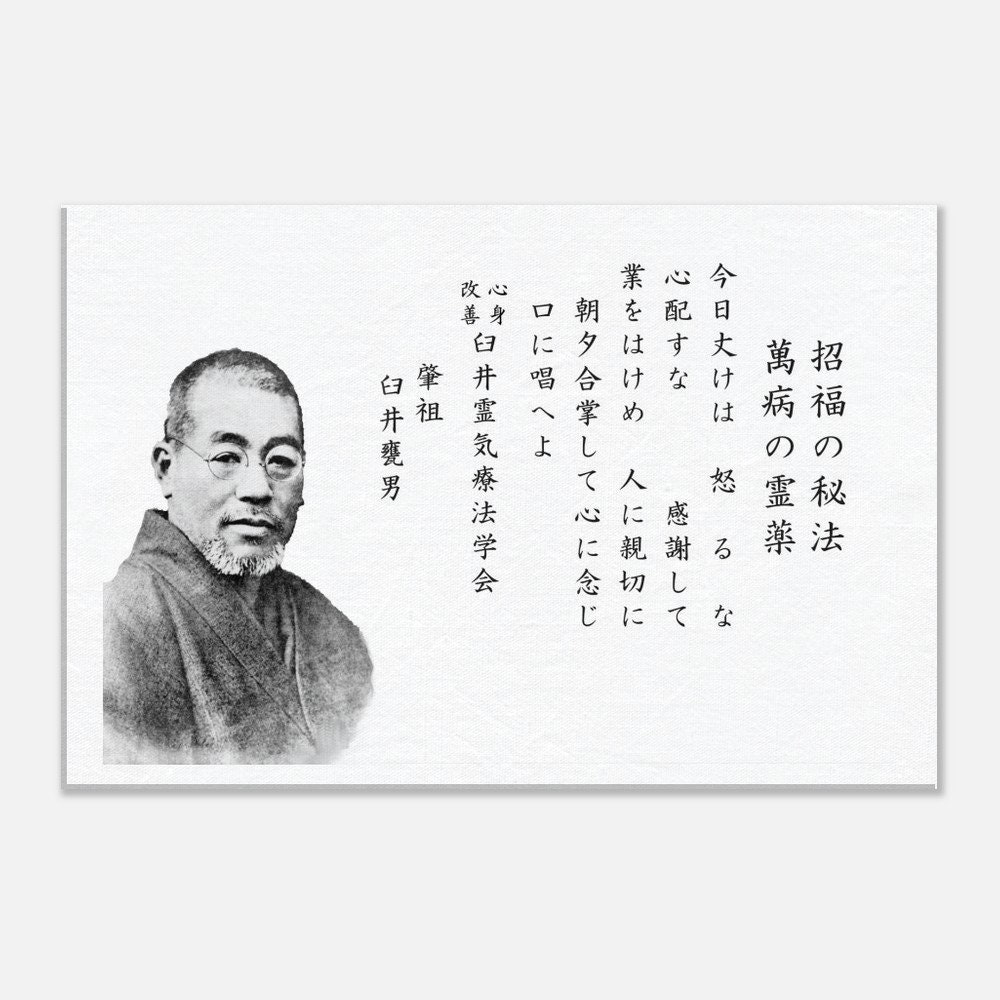 招福の秘法
萬病の霊薬
今日丈けは　怒るな
心配すな　感謝して
業をはけめ　人に親切に
朝夕合掌して心に念じ
口に唱へよ
心身
改善
臼井霊気療法学会
肇祖
臼井甕男